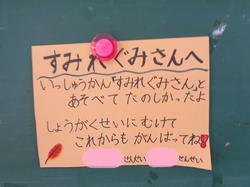 すみれぐみさんへ
いっしゅうかん「すみれぐみさん」と
あそべて たのしかったよ
しょうがくせいにむけて
これからも がんばってね!
せんせい せんせい